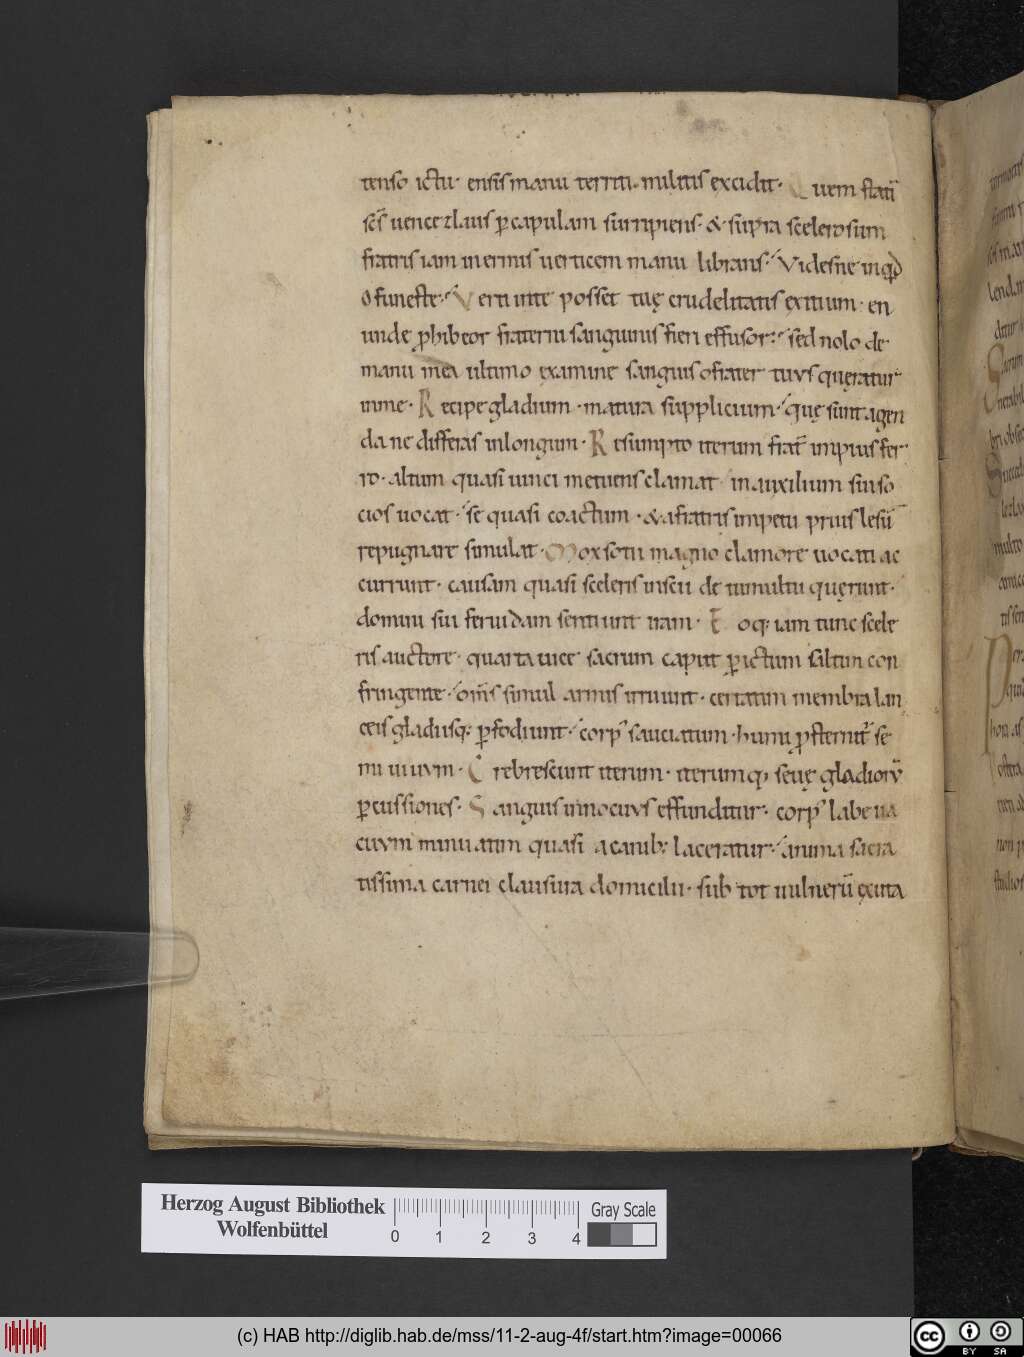 tenso ictu· ensis manu territi· militis excidit· Quem statī
sc̄s uencezlaus ꝑ capulam surripiens· & supra scelerosum
fratris iam inermis uerticem manu librans· Videsne inqd
o funeste· Verti inte posset tuę crudelitatis exitium· en
unde ꝓhibeor fraterni sanguinis fieri effusor· sed nolo de
manu mea ultimo examine sanguis o frater tuus queratur
inme· Recipe gladium· matura supplicium· quę sunt agen
da ne differas inlongum· Resumpto iterum frat̄ impius fer
ro· altum quasi uinci metuens clamat inauxilium sui so
cios uocat· se quasi coactum· & a fratris impetu prius lesū
repugnare simulat· Mox sotii magno clamore uocati ac
currunt· causam quasi sceleris inscii de tumultu quęrunt·
domini sui feruidam sentiunt iram· Eoq; iam tunc scele
ris auctore· quarta uice sacrum caput ꝑ ictum saltim con
fringente· om̄s simul armis irruunt· certatim membra lan
ceis gladiisq; ꝑfodiunt· corpꝰ sauciatum· humi ꝓsternunt̄ se
mi uiuum· Crebrescunt iterum· iterumq; seuę gladiorū
ꝑcussiones· Sanguis innocuus effunditur· corpꝰ labe ua
cuum minuatim quasi a canib; laceratur· anima sacra
tissima carnei clausura domicilii· sub tot uulnerū exuta
Herzog August Bibliothek
Wolfenbüttel
0 1 2 3 4
Gray Scale
(c) HAB http://diglib.hab.de/mss/11-2-aug-4f/start.htm?image=00066
cc BY SA